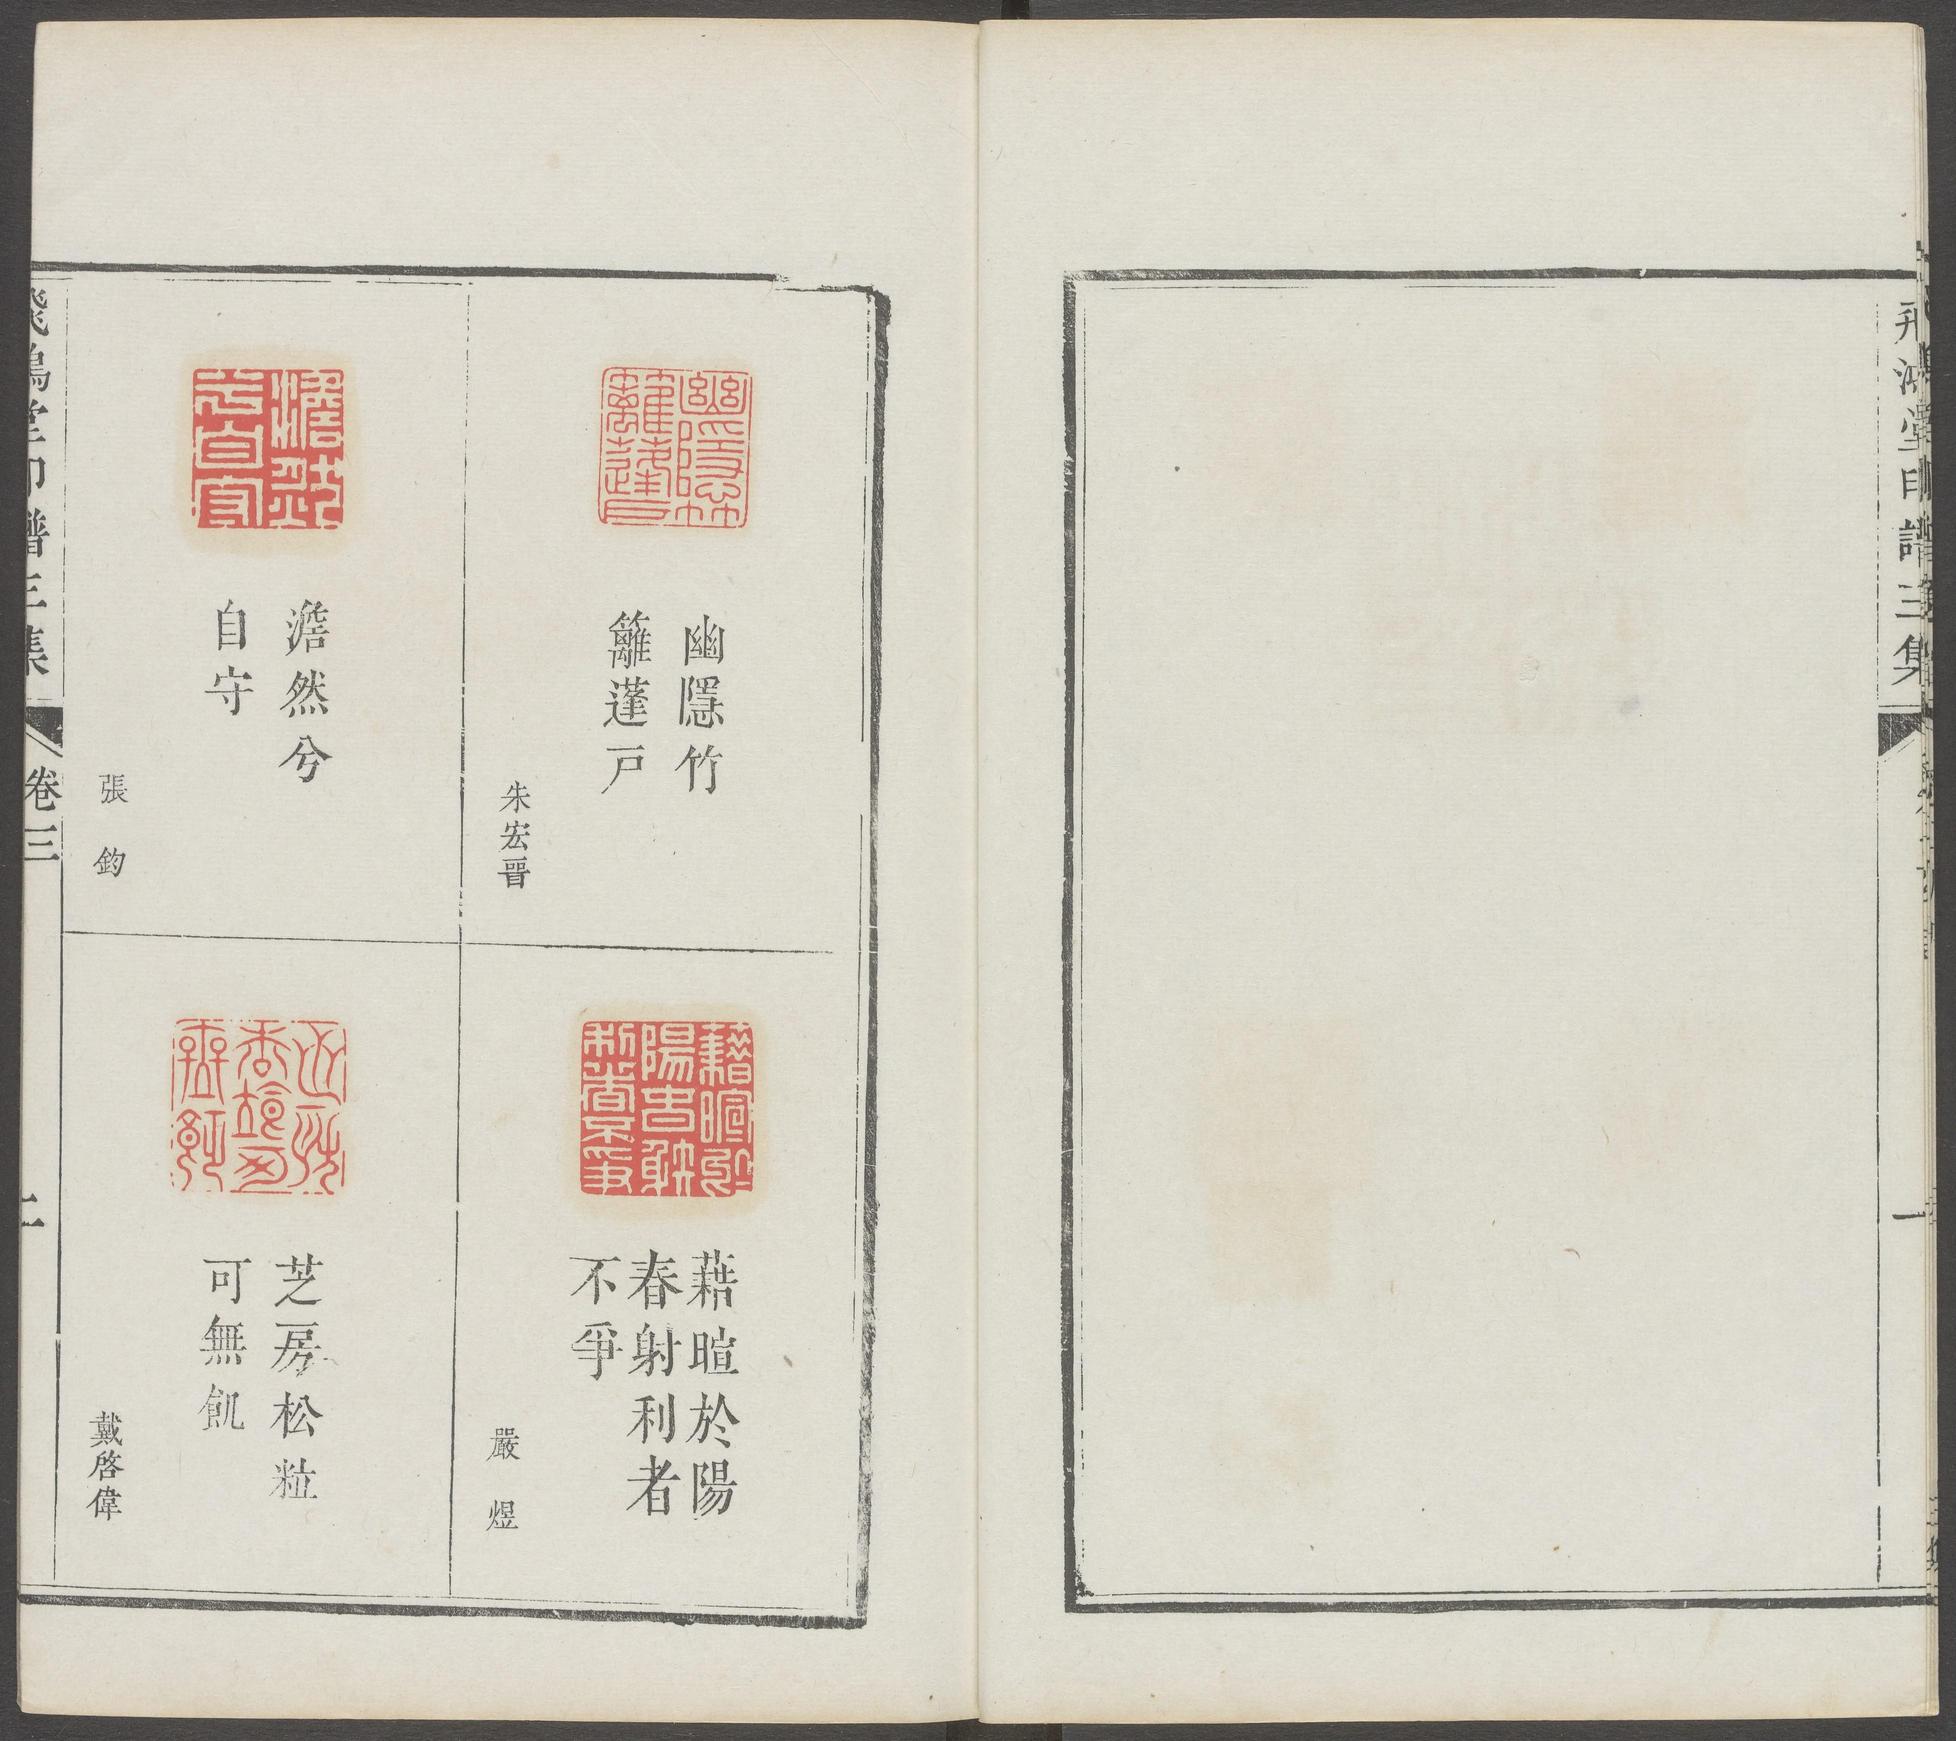 飛鴻堂印譜三集
一
幽隱竹
籬蓬戸
朱宏晋
澹然兮
自守
張鈞
藉暄於陽
春射利者
不爭
嚴煜
芝房松粒
可無飢
戴啓偉
飛鴻堂印譜三集
卷三
二